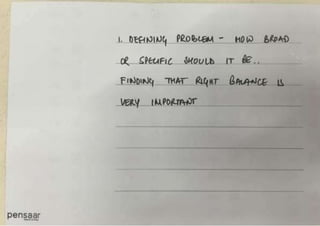 1. DEFINING PROBLEM - HOW BROAD
OR SPECIFIC SHOULD IT BE..
FINDING THAT RIGHT BALANCE IS
VERY IMPORTANT
pensaar